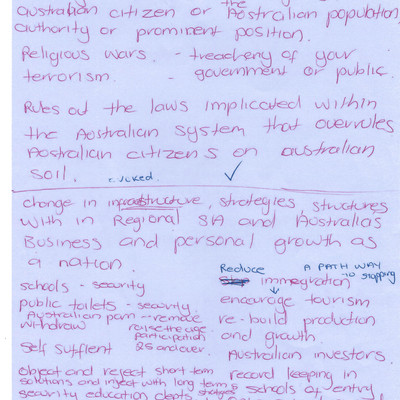 the
australian citizen or Australian population,
authority or prominent position.
Religious wars. - treachery of your
terrorism. - government or public.
Rules out the laws implicated within
the Australian system that overrules
Australian citizens on australian
soil.
change in infrastructure, strategies structures
with in Regional SA and Australias
Business and personal growth as
a nation.
Reduce A PATH WAY to stopping
schools - security immegration
public toilets - security encourage tourism
Australian pom - remove re-build production
withdraw raise the age and growth.
participation
self suffient 25 and over. Australian investors.
object and reject short term record keeping in
solutions and inject with long term schools of entry,
security education depts